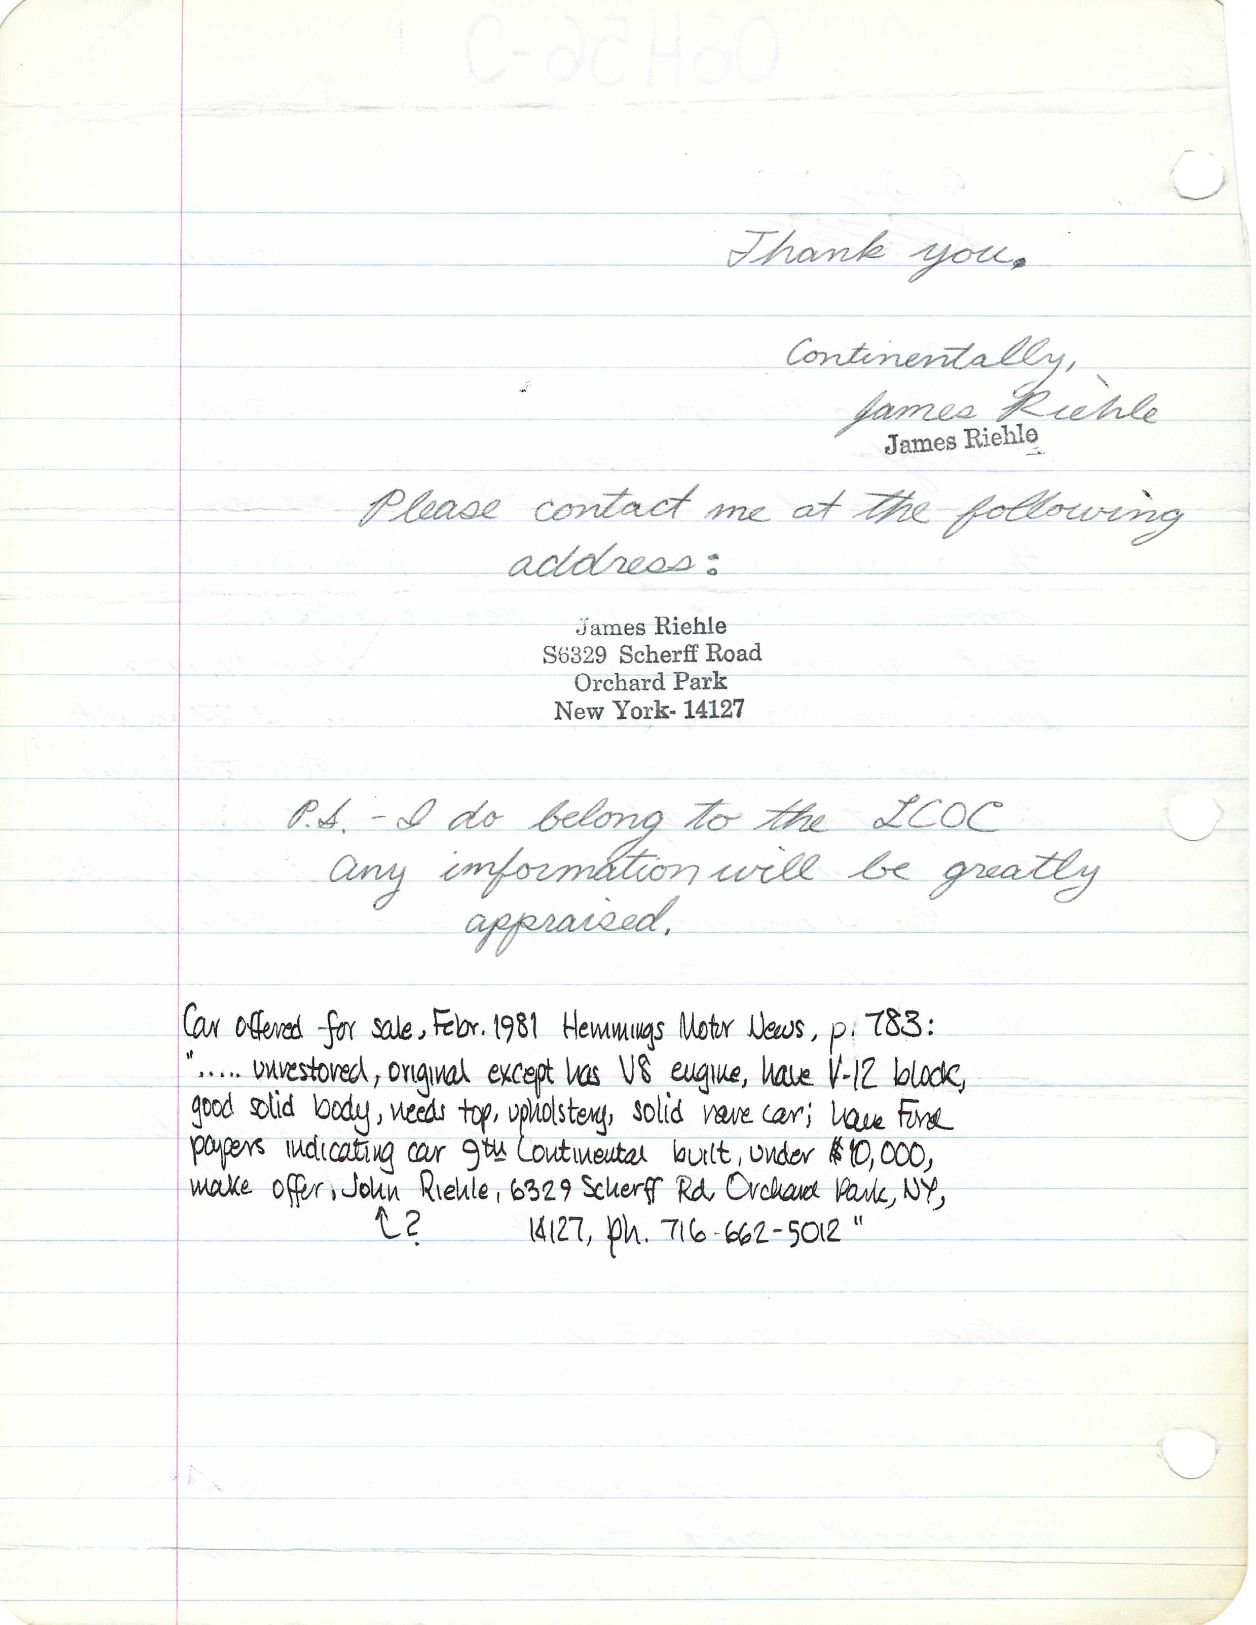 Thank you.
Continentally,
James Riehle
James Riehle
Please contact me at the following
address:
James Riehle
S6329 Scherff Road
Orchard Park
New York- 14127
P.S. - I do belong to the LCOC
Any information will be greatly
appraised.
Car offered for sale, Febr. 1981 Hemmings Motor News, p. 783:
"..... unrestored, original except has V8 engine, have V-12 block,
good solid body, needs top, upholstery, solid rare car; have Ford
papers indicating car 9th Continental built, under $10,000,
make offer, John Riehle, 6329 Scherff Rd. Orchard Park, NY,
↑? 14127, ph. 716-662-5012"